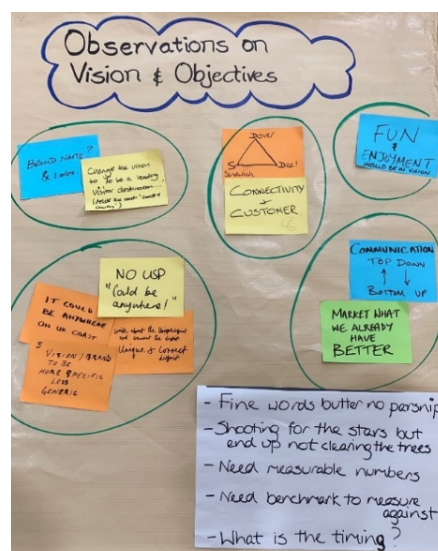 Observations on
Vision & Objectives
BRAND NAME?
& LOGO
Change the vision
to to be a leading
visitor destination...
DOVER
S
Sandwich
Deal
CONNECTIVITY
+
CUSTOMER
FUN
&
ENJOYMENT
SHOULD BE IN VISION
NO USP
"Could be
anywhere!"
IT COULD
BE ANYWHERE
ON UK COAST
VISION/BRAND
TO BE
MORE SPECIFIC
LESS
GENERIC
Unique &
COMMUNICATION
TOP DOWN
BOTTOM UP
MARKET WHAT
WE ALREADY
HAVE
BETTER
- Fine words butter no parsnip
- Shooting for the stars but
end up not clearing the trees
- Need measurable numbers
- Need benchmark to measure
against
- What is the timing?